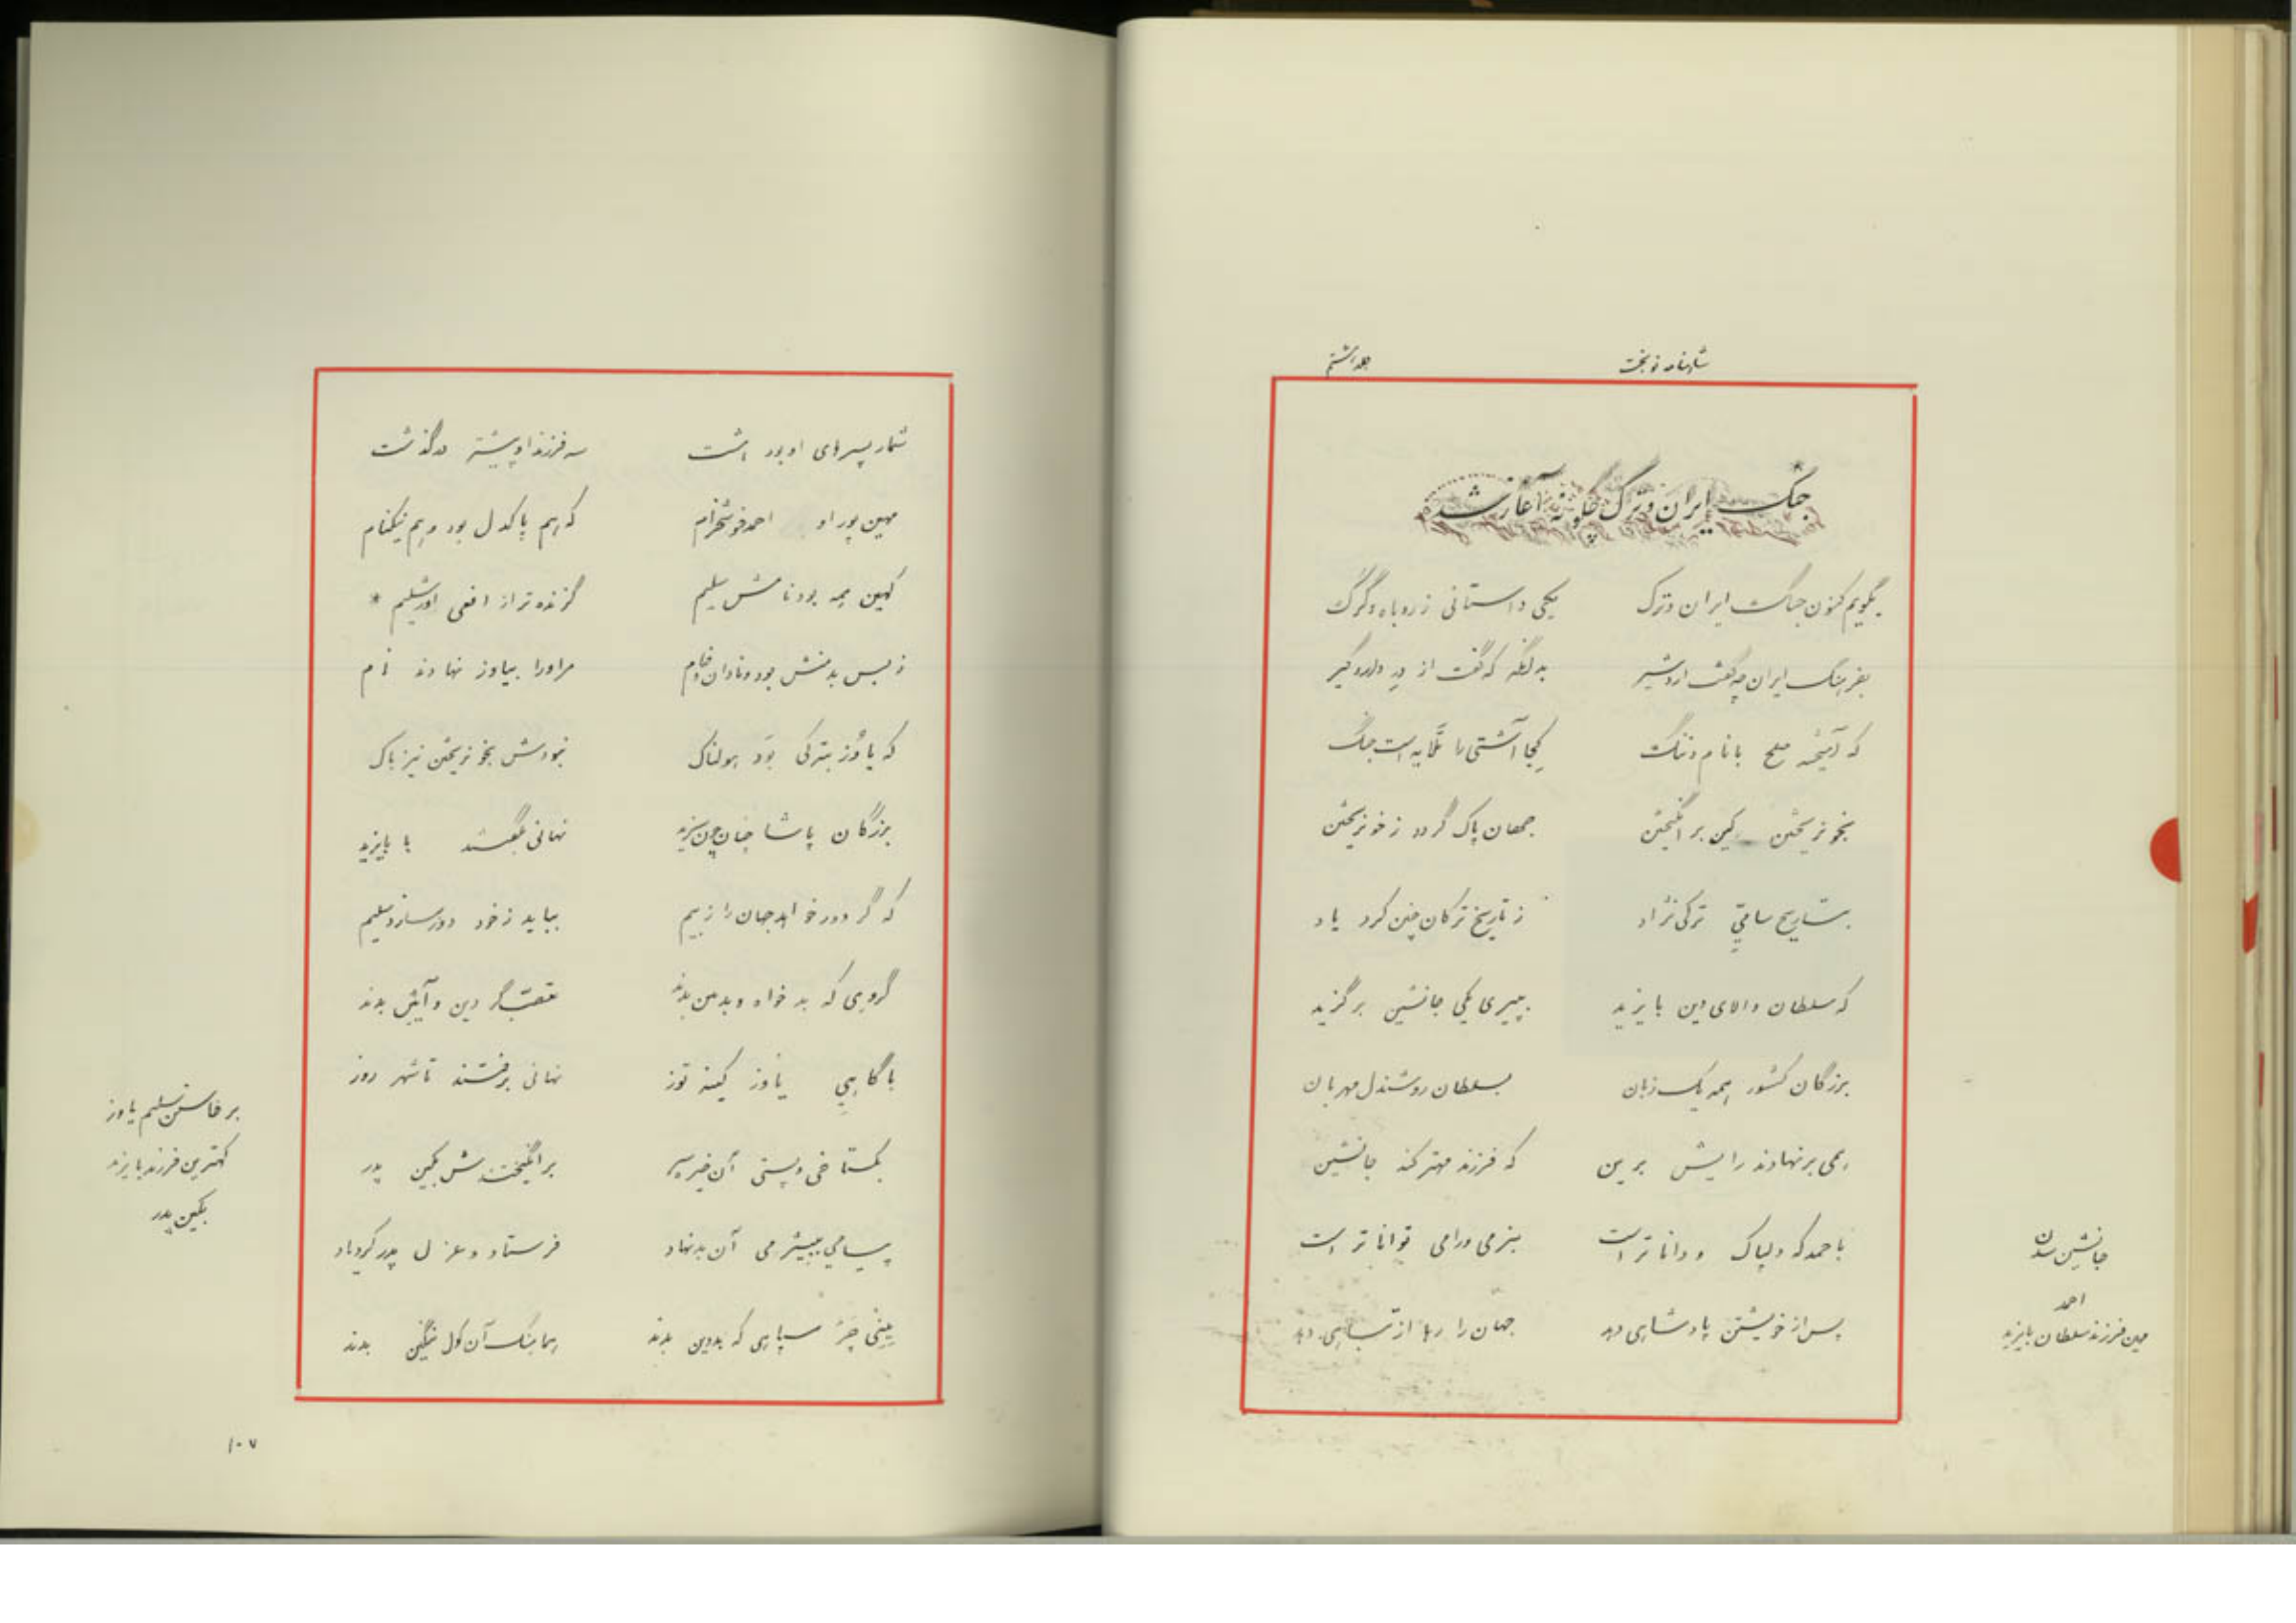 شاهنامه نوبخت
جلد هشتم
جنگ ایران و ترک چگونه آغاز شد
بگویم کنون جنگ ایران و ترک یکی داستانی ز روباه و گرگ
بفرهنگ ایران چه گفت اردشیر که گفت از
که صلح با نام و ننگ کجا آشتی را است جنگ
بخونریختن کین برانگیختن جهان پاک گردد ز خونریختن
بتاریخ سامیِ ترکی نژاد ز تاریخ ترکان چنین کرد یاد
که سلطان والای دین بایزید بپیری یکی جانشین برگزید
بزرگان کشور همه یک زبان بسلطان روشندل مهربان
همی برنهادند رایش برین که فرزند مهتر کند جانشین
باحمد که دلپاک و داناتر است بنرمی و رامی تواناتر است
پس از خویشتن پادشاهی دهد جهان را رها از تباهی دهد
جانشین شدن
احمد
مهین فرزند سلطان بایزید
شمار پسرهای او بود هشت سه فرزند او پیشتر درگذشت
مهین پور او احمد خوشخرام که هم پاکدل بود و هم نیکنام
کهین همه بود نامش سلیم گزنده تر از افعی اورشلیم *
ز بس بدمنش بود و نادان و خام مر او را بیاوز نهادند نام
که یاوُز بترکی بوَد هولناک نبودش بخونریختن نیز باک
بزرگان پاشا چنان چون سزید نهانی بگفتند با بایزید
که گر دور خواهد جهان را ز بیم بباید ز خود دور سازد سلیم
گروهی که بدخواه و بدبین بدند تعصّبگر دین و آیین بدند
بآگاهیِ یاوز کینه توز نهانی برفتند تا شهر روز
بگستاخی و پستی آن خیره سر برانگیختندش بکین پدر
پیامی ببیشرمی آن بدنهاد فرستاد و عزل پدر کرد یاد
یینی چرَ سپاهی که بددین بدند هماهنگ آن گول ننگین بدند
برخاستن سلیم یاوز
کهترین فرزند بایزید
بکین پدر
۱۰۷